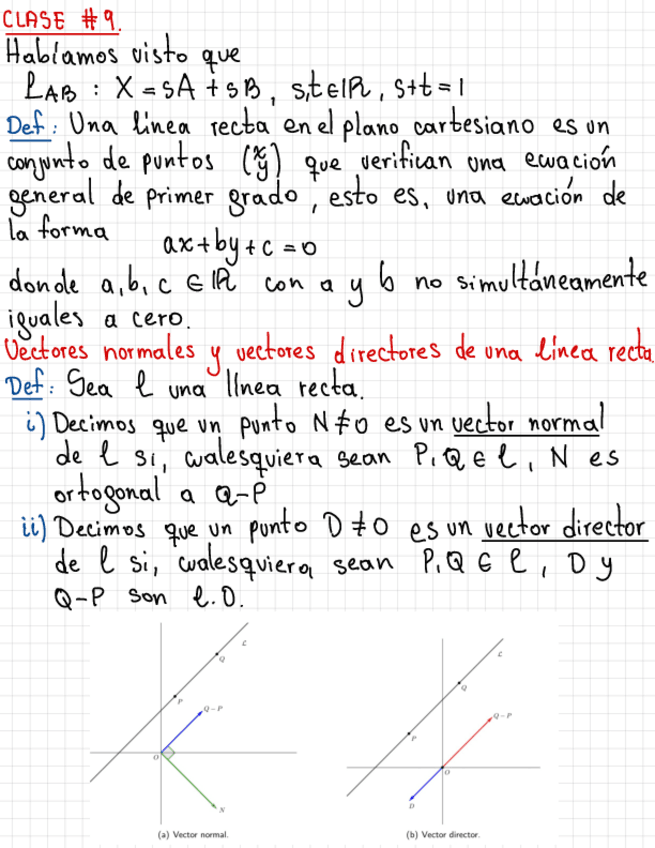 CLASE #9.
Habíamos visto que
ℒAB : X = sA + sB, s,t ∈ ℝ, s+t = 1
Def: Una línea recta en el plano cartesiano es un
conjunto de puntos (x y) que verifican una ecuación
general de primer grado, esto es, una ecuación de
la forma
ax + by + c = 0
donde a, b, c ∈ ℝ con a y b no simultáneamente
iguales a cero.
Vectores normales y vectores directores de una línea recta.
Def: Sea ℓ una línea recta.
i) Decimos que un punto N ≠ 0 es un vector normal
de ℓ si, cualesquiera sean P, Q ∈ ℓ, N es
ortogonal a Q-P
ii) Decimos que un punto D ≠ 0 es un vector director
de ℓ si, cualesquiera sean P, Q ∈ ℓ, D y
Q-P son ℓ.D.
ℒ
Q
P
Q − P
O
N
(a) Vector normal.
ℒ
Q
Q − P
P
O
D
(b) Vector director.